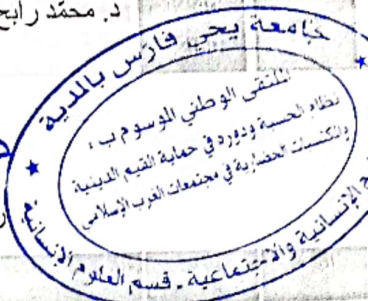 د. محمّد رابح
جامعة يحي فارس بالمدية
الملتقى الوطني الموسوم ب :
نظام الحسبة ودوره في حماية القيم الدينية
والمكتسبات الحضارية في مجتمعات الغرب الإسلامي
الإنسانية والاجتماعية - قسم العلوم الإنسانية